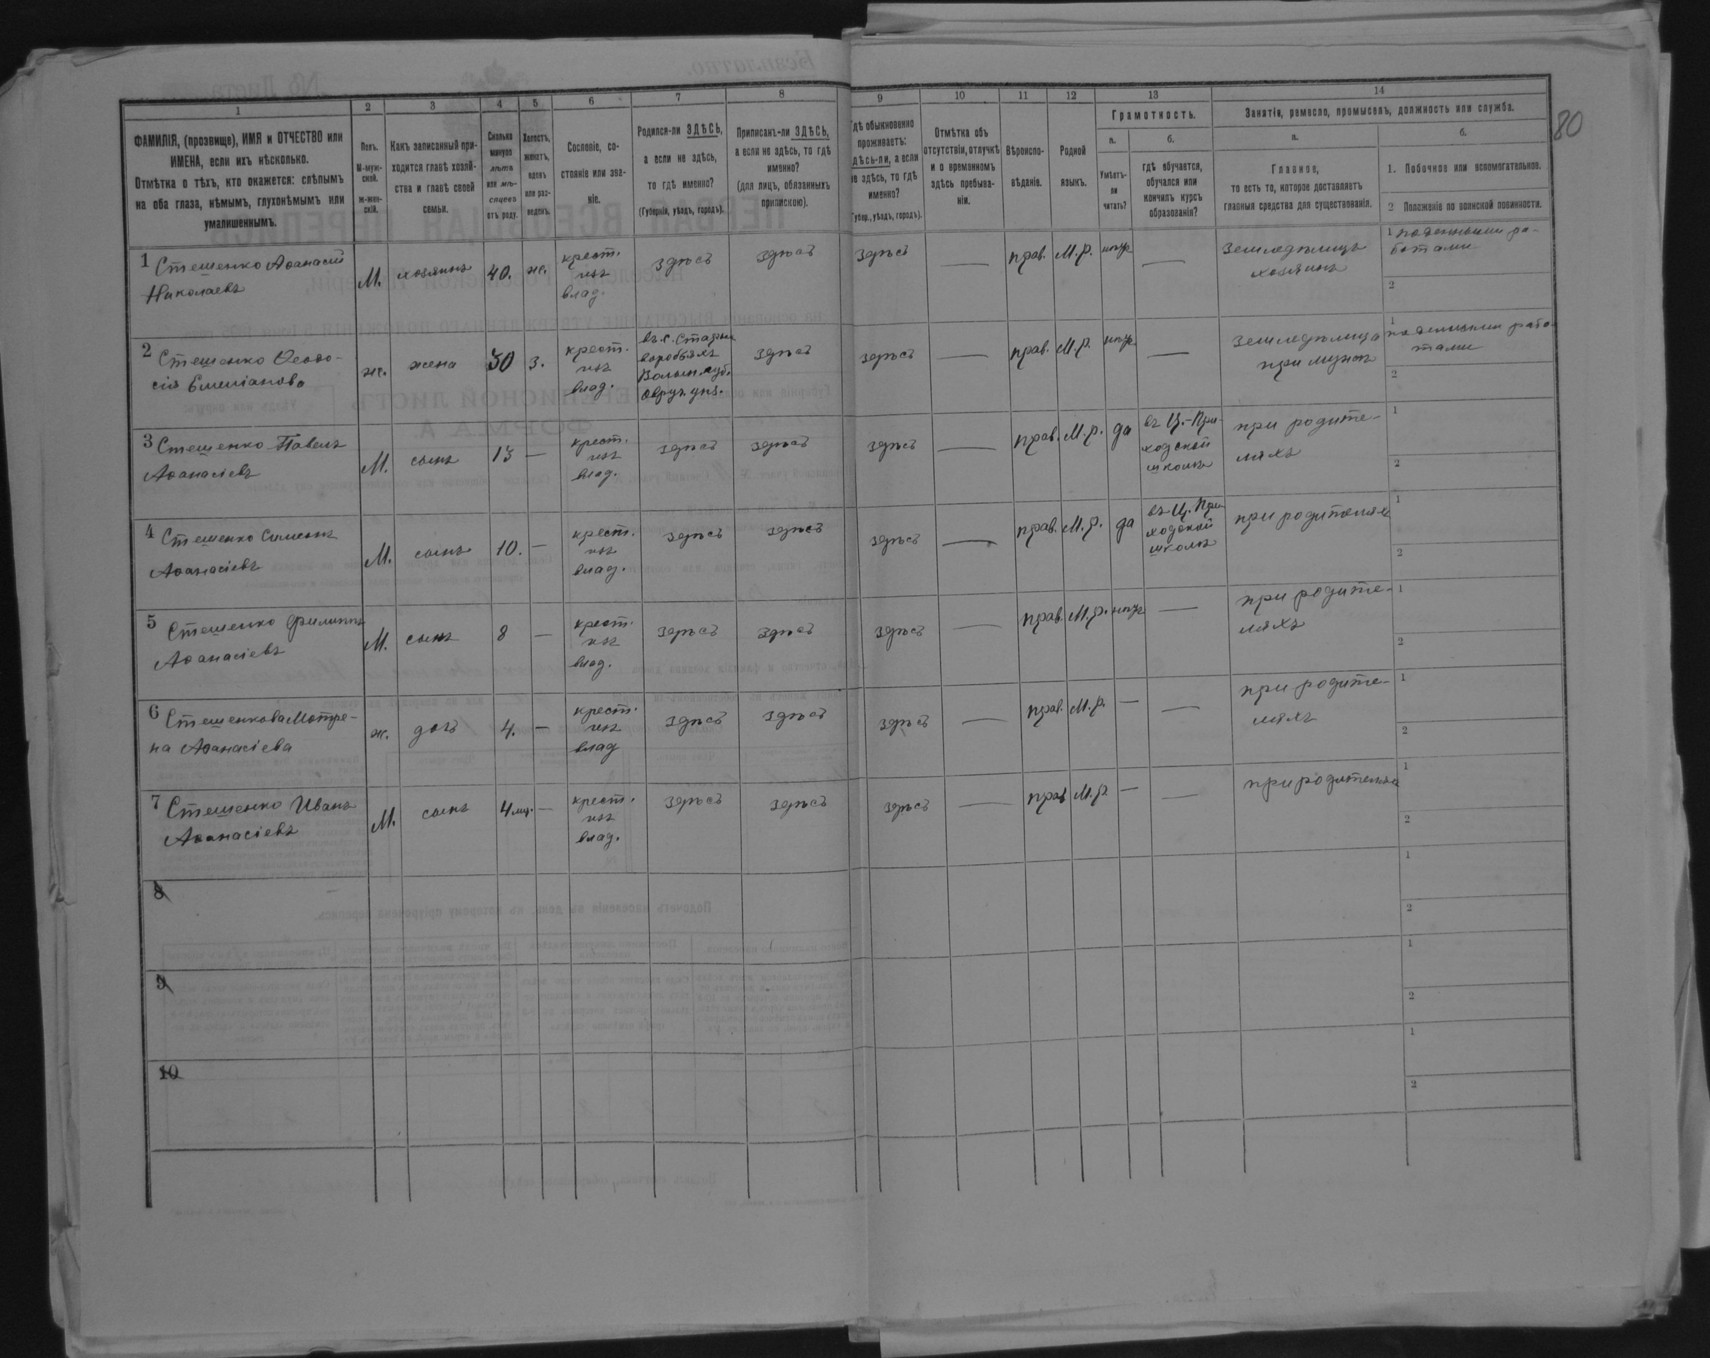 80
1
2
3
4
5
6
7
8
9
10
11
12
13
14
ФАМИЛІЯ, (прозвище), ИМЯ и ОТЧЕСТВО или
ИМЕНА, если ихъ нѣсколько.
Отмѣтка о тѣхъ, кто окажется: слѣпымъ
на оба глаза, нѣмымъ, глухонѣмымъ или
умалишеннымъ.
Полъ.
М-муж-
ской.
Ж-жен-
скій.
Какъ записанный при-
ходится главѣ хозяй-
ства и главѣ своей
семьи.
Сколько
минуло
лѣтъ
или мѣ-
сяцевъ
отъ роду.
Холостъ,
женатъ,
вдовъ
или раз-
веденъ.
Сословіе, со-
стояніе или зва-
ніе.
Родился-ли ЗДѢСЬ,
а если не здѣсь,
то гдѣ именно?
(Губернія, уѣздъ, городъ).
Приписанъ-ли ЗДѢСЬ,
а если не здѣсь, то гдѣ
именно?
(для лицъ, обязанныхъ
припискою).
Гдѣ обыкновенно
проживаетъ:
здѣсь-ли, а если
не здѣсь, то гдѣ
именно?
(Губер., уѣздъ, городъ).
Отмѣтка объ
отсутствіи, отлучкѣ
и о временномъ
здѣсь пребыва-
ніи.
Вѣроиспо-
вѣданіе.
Родной
языкъ.
Грамотность.
а.
б.
Умѣетъ-
ли
читать?
гдѣ обучается,
обучался или
кончилъ курсъ
образованія?
Занятіе, ремесло, промыселъ, должность или служба.
а.
б.
Главное,
то есть то, которое доставляетъ
главныя средства для существованія.
1. Побочное или вспомогательное.
2 Положеніе по воинской повинности.
1 Стешенко Аѳанасій
Николаевъ
М.
хозяинъ
40.
ж.
крест.
изъ
влад.
здѣсь
здѣсь
здѣсь
—
прав.
М.р.
нѣтъ
—
Земледѣлецъ
хозяинъ
1 поденными ра-
ботами
2
2 Стешенко Ѳеодо-
сія Емеліанова
ж.
жена
30
з.
крест.
изъ
влад.
въ с. Старых
воробьяхъ
Волын. губ.
Овруч. уѣз.
здѣсь
здѣсь
—
прав.
М.р.
нѣтъ
—
Земледѣлица
при мужѣ
1
поденными рабо-
тами
2
3 Стешенко Павелъ
Аѳанасіевъ
М.
сынъ
13
—
крест.
изъ
влад.
здѣсь
здѣсь
здѣсь
—
прав.
М.р.
да
въ Ц.-При-
ходской
школѣ
при родите-
ляхъ
1
2
4 Стешенко Симеонъ
Аѳанасіевъ
М.
сынъ
10.
—
крест.
изъ
влад.
здѣсь
здѣсь
здѣсь
—
прав.
М.р.
да
въ Ц. При-
ходской
школѣ
при родителяхъ
1
2
5 Стешенко Филиппъ
Аѳанасіевъ
М.
сынъ
8
—
крест.
изъ
влад.
здѣсь
здѣсь
здѣсь
—
прав.
М.р.
нѣтъ
—
при родите-
ляхъ
1
2
6 Стешенкова Мотре-
на Аѳанасіева
ж.
дочь
4.
—
крест.
изъ
влад
здѣсь
здѣсь
здѣсь
—
прав.
М.р.
—
—
при родите-
ляхъ
1
2
7 Стешенко Иванъ
Аѳанасіевъ
М.
сынъ
4 мѣ.
—
крест.
изъ
влад.
здѣсь
здѣсь
здѣсь
—
прав
М.р
—
—
при родителяхъ
1
2
8
1
2
9
1
2
10
1
2